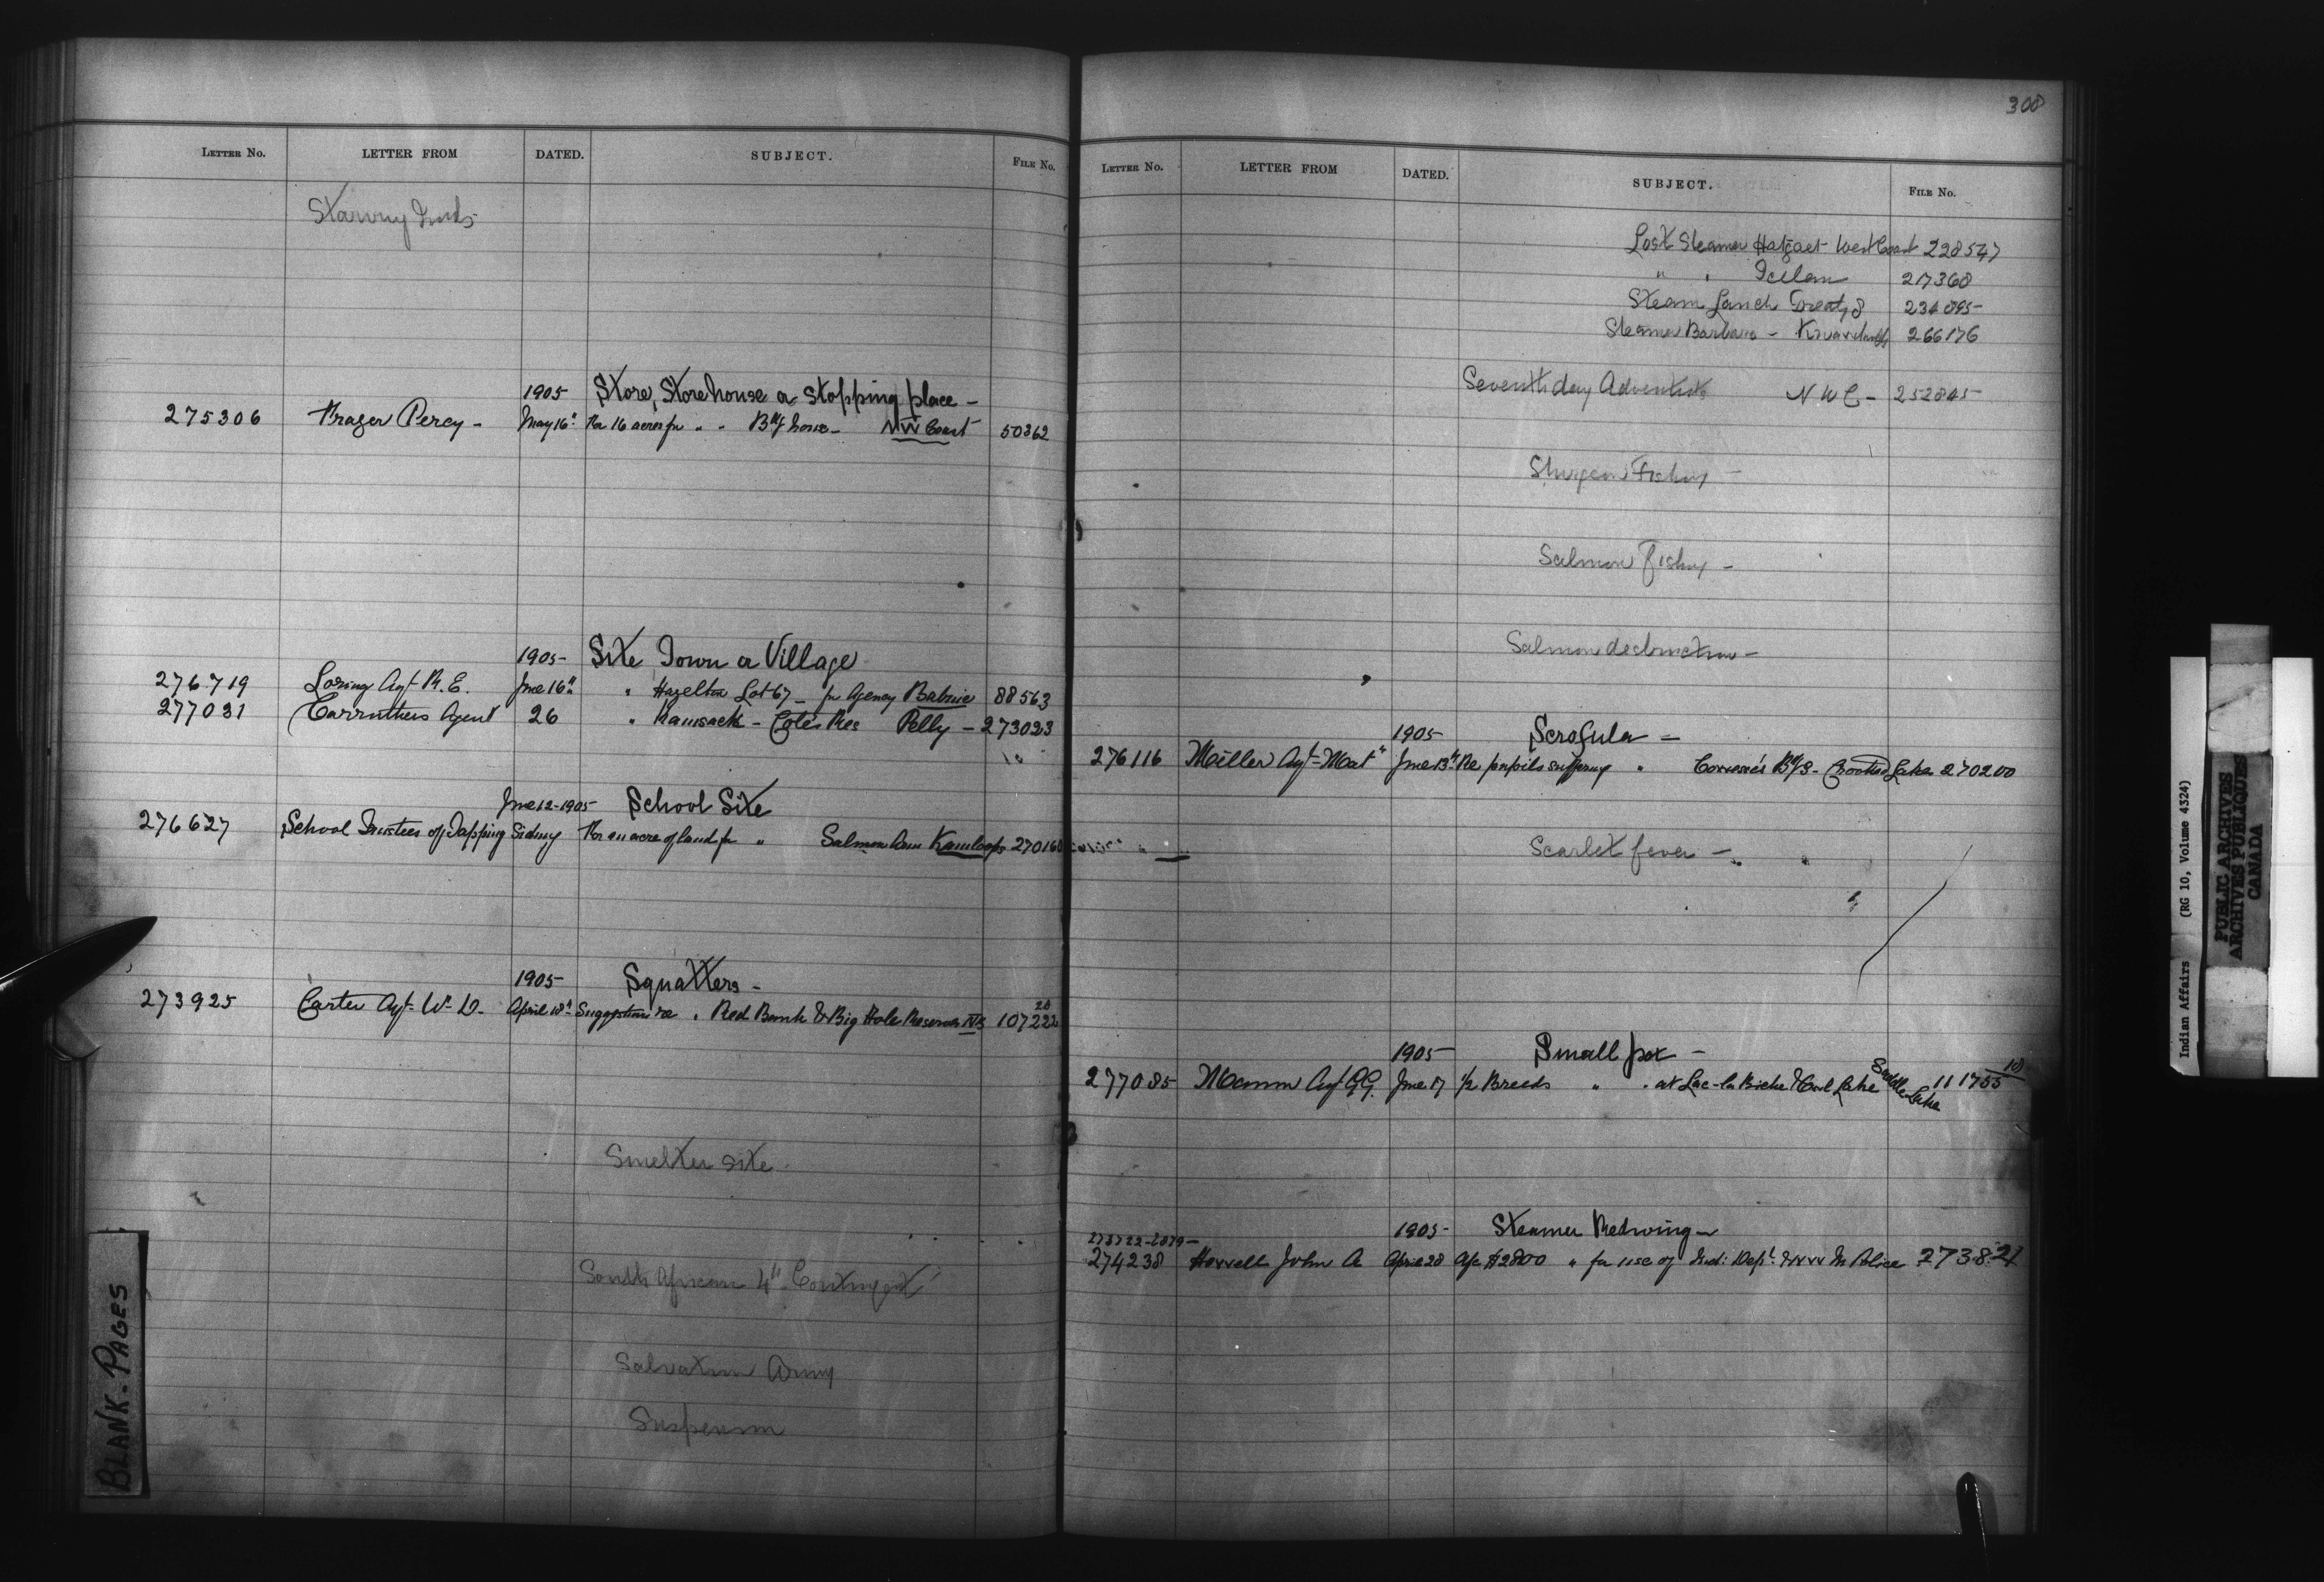 LETTER No. LETTER FROM DATED. SUBJECT. FILE No.
1905 Store, Storehouse or Stopping place -
275306 Frazer Percy - May 16" For 16 acres for " " NW Coast 50362
1905- Site Town or Village
276719 Loring Agt R. E. June 16" " Hazelton Lot 67 - for Agency Babine 88563
277031 Carruthers Agent 26 " Kamsack - Cote's Res Pelly - 273023
June 12-1905- School Site
276627 School Trustees of Tapping Sidney For an acre of land for " Salmon Arm Kamloops 270160
1905- Squatters -
273925 Carter Agt W. D. April 18" Suggestions re " Red Bank & Big Hole Reserves NB 107222
Smelter site
South African 4th Contingent
Salvation Army
Suspension
BLANK-PAGES
308
LETTER No. LETTER FROM DATED. SUBJECT. FILE No.
Lost Steamer West Coast 228547
" " 217360
Steam Lanch Treaty 8
Steamer Barbara - 266176
Seventh day Adventists 252845
Sturgeon Fishing -
Salmon Fishing -
Salmon destruction -
1905- Scrofula -
276116 Miller Agt Mat" June 13" Re pupils suffering " Cowesse's B/S - Crooked Lake 270200
Scarlet fever -
1905- Small pox -
277085 Mann Agt GG. June 17 1/2 Breeds " " at Lac-la Biche & Lake Saddle Lake 111755
10
1905- Steamer Redwing -
274238 Howell John A April 28 a/c $2800 " for use of Ind: Dept. & NWM Police 273821
Indian Affairs (RG 10, Volume 4324)
PUBLIC ARCHIVES
ARCHIVES PUBLIQUES
CANADA